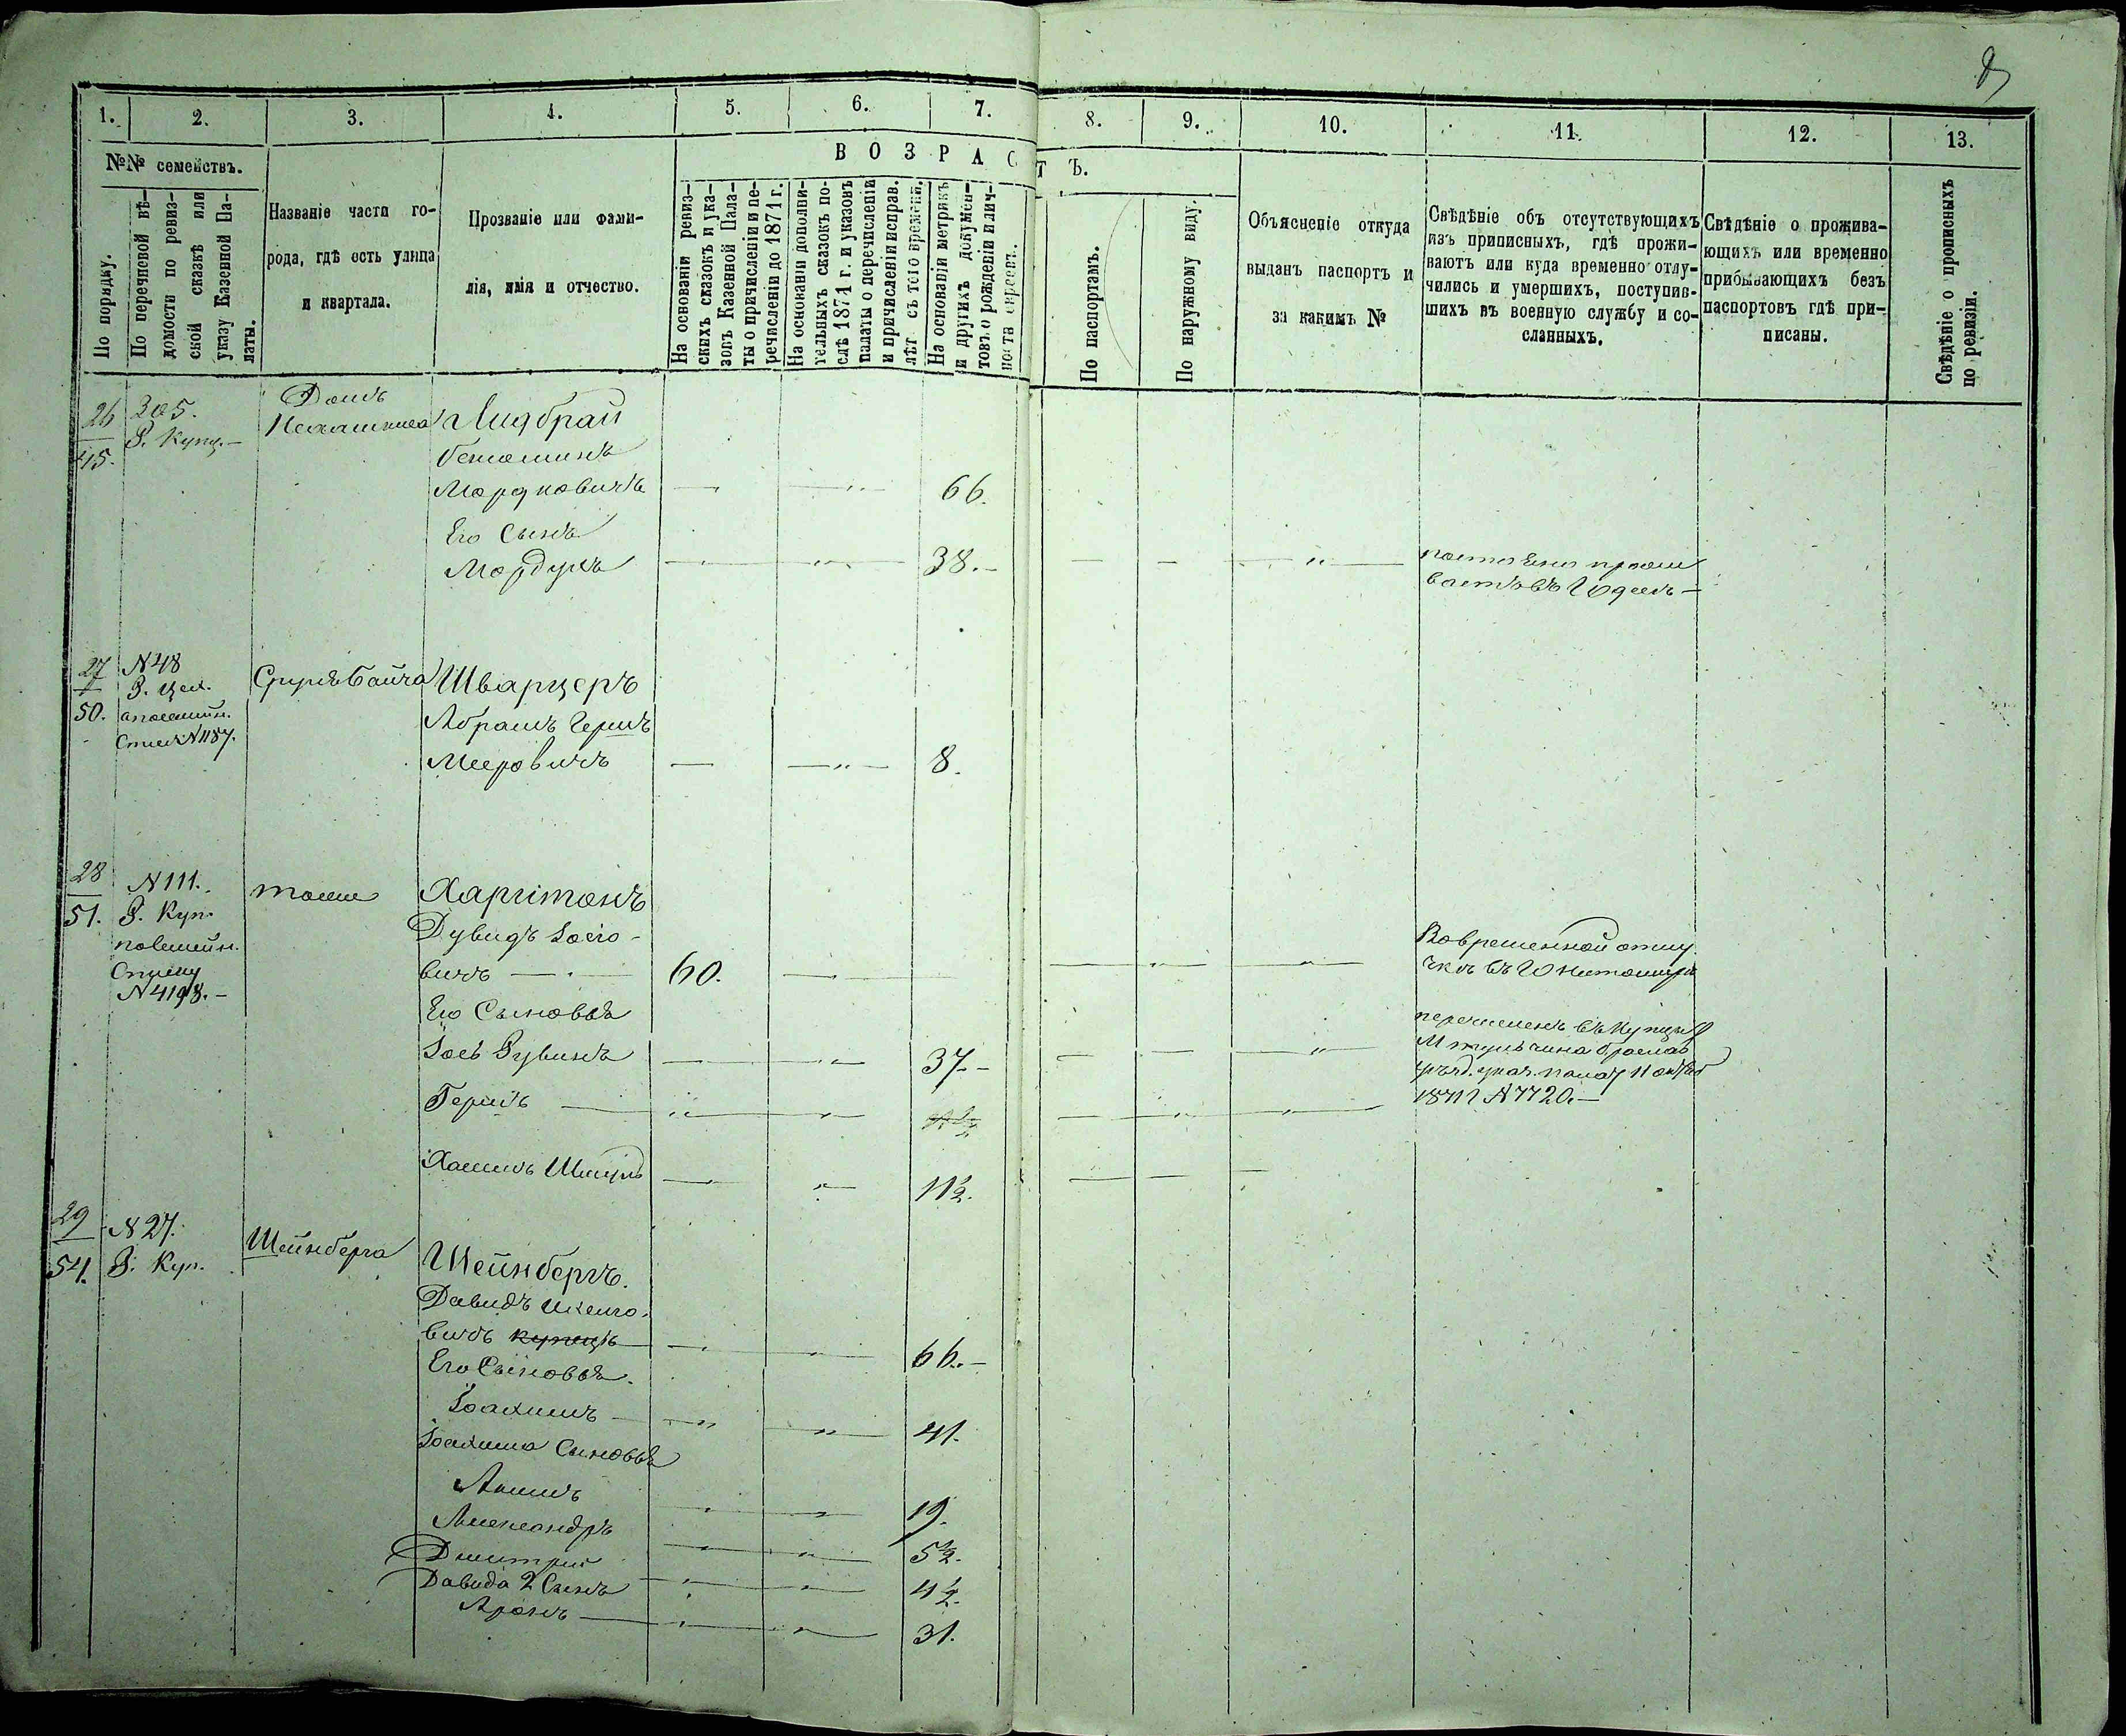 1. 2. 3. 4. 5. 6. 7. 8. 9. 10. 11. 12. 13.
№№ семействъ.
По порядку.
По перечневой вѣ-
домости по ревиз-
ской сказкѣ или
указу Казенной Па-
латы.
Названіе части го-
рода, гдѣ есть улица
и квартала.
Прозваніе или фами-
лія, имя и отчество.
ВОЗРАСТЪ.
На основаніи ревиз-
скихъ сказокъ и ука-
зовъ Казенной Пала-
ты о причисленіи и пе-
речисленіи до 1871 г.
На основаніи дополни-
тельныхъ сказокъ по-
слѣ 1871 г. и указовъ
Палаты о перечисленіи
и причисленіи исправ.
лѣт съ того времени.
На основаніи метрикъ
и другихъ докумен-
товъ о рожденіи и лич-
ности евреевъ.
По паспортамъ.
По наружному виду.
Объясненіе откуда
выданъ паспортъ и
за какимъ №
Свѣдѣніе объ отсутствующихъ
изъ приписныхъ, гдѣ прожи-
ваютъ или куда временно отлу-
чились и умершихъ, поступив-
шихъ въ военную службу и со-
сланныхъ.
Свѣдѣніе о прожива-
ющихъ или временно
прибывающихъ безъ
паспортовъ гдѣ при-
писаны.
Свѣдѣніе о прописныхъ
по ревизіи.
26
45.
305.
Р. Купц.
Домъ
Лидбрай
Мордковичъ 66.
Его Сынъ
Мордухъ 38.
27
50.
N 48
N 1187.
Шварцеръ
Абрамъ Гершъ
Мееровичъ 8.
28
51.
N 111.
Р. Куп.
N 4198.
Харитонъ
Дувидъ Іосіо-
вичъ 60.
Во временной отлу
Его Сыновья
Іось Рувинъ 37.
Гершъ
1871 г N 7720.
Хаимъ Шмуль 11½.
29
54.
N 27.
Р. Куп.
Шейнберга
Шейнбергъ.
Давидъ
вичъ купецъ 66.
Его Сыновья.
Іоахимъ 41.
Іоахима Сыновья
19.
Александръ 5½.
Дмитрій 4½.
Давида 2 Сынъ
Аронъ 31.